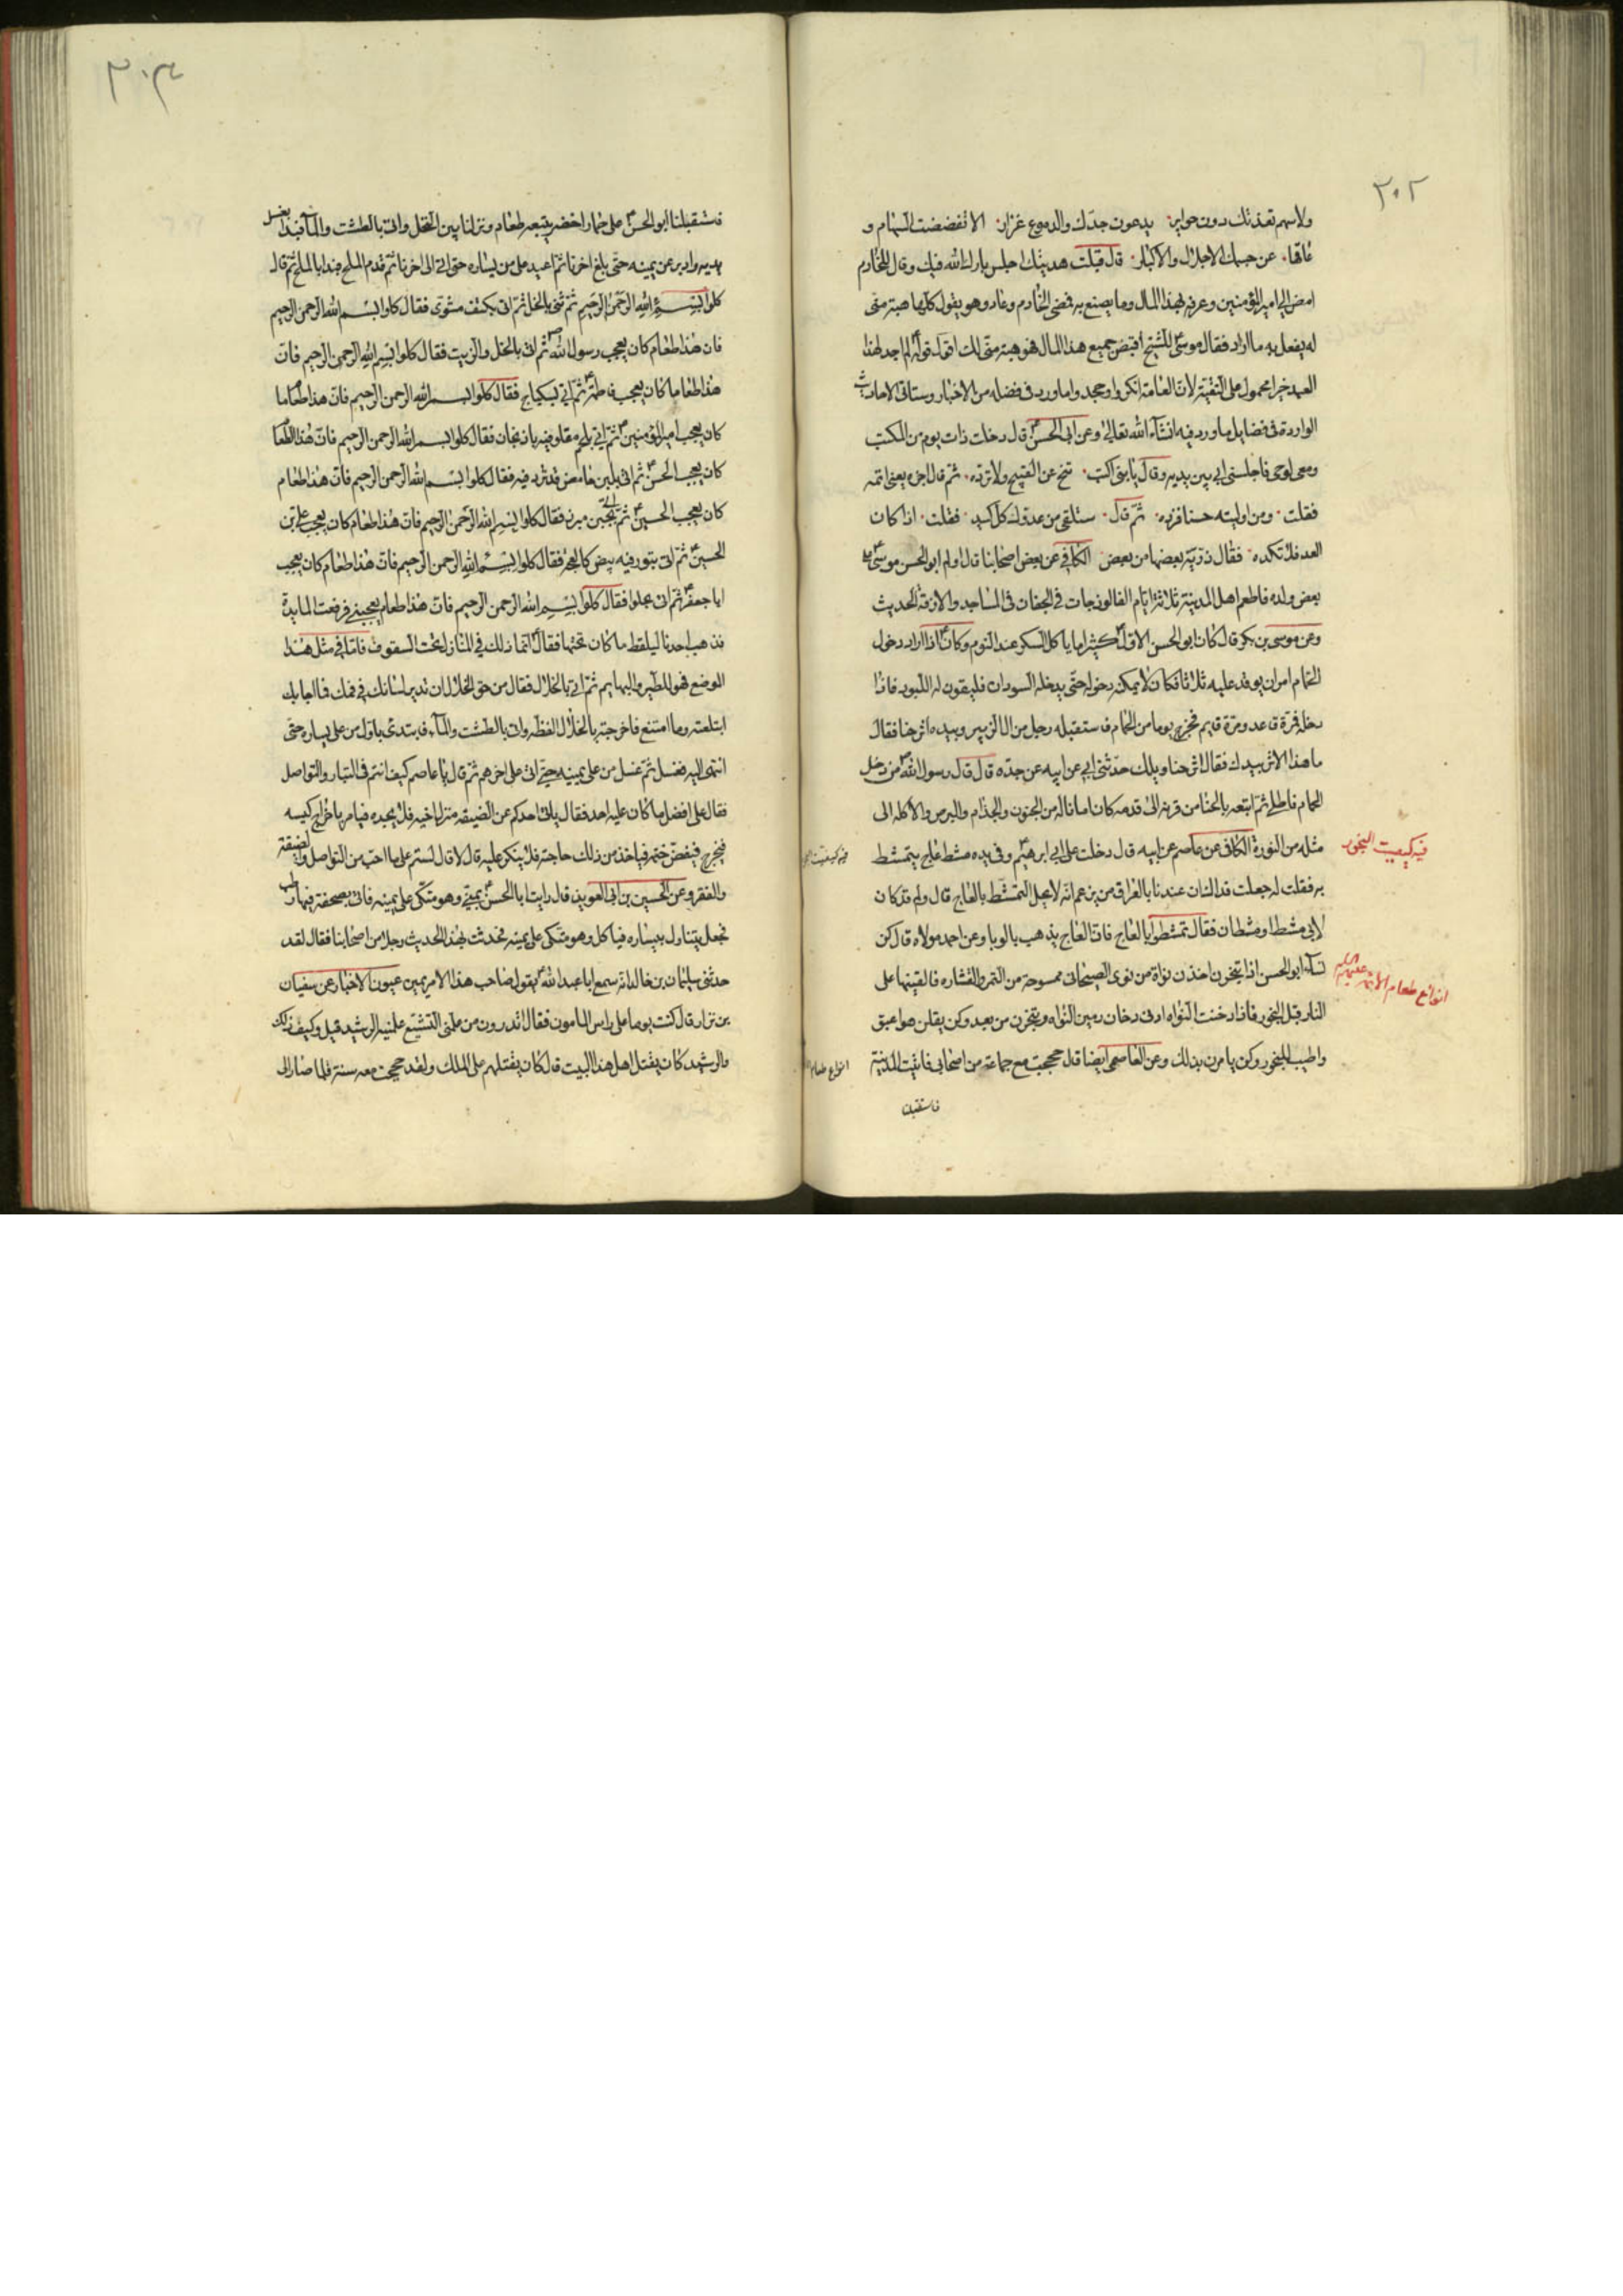 ٣٠٢
ولاسهم تعذتك دون حواير يدعون جدك والدموع غزار الا تغضضت السهام و
عاقها عن جسمك الاجلال والاكبار قال قبلت هديتك اجلس بارك الله فيك وقال للخادم
امض الى امير المؤمنين وعرفه بهذا المال وما يصنع به فمضى الخادم وعاد وهو يقول كلها هبة منى
له يفعل به ما اراد فقال موسى للشيخ اقبض جميع هذا المال فهو هبة منى لك اقول قوله لم اجد لهذا
العيد خبرا محمول على التقية لان العامة انكروا وجحدوا ما ورد فى فضله من الاخبار وستاتى الاحاديث
الواردة فى فضايل ما ورد فيه انشآء الله تعالى وعن ابى الحسن قال دخلت ذات يوم من المكتب
ومعى لوحى فاجلسنى ابى بين يديه وقال يا بنى اكتب تنح عن القبيح ولا ترده ثم قال اجزه يعنى اتمه
فقلت ومن اوليته حسنا فزده ثم قال ستلقى من عدوك كل كيد فقلت اذا كان
العدو فلا تكده فقال ذرية بعضها من بعض الكافى عن بعض اصحابنا قال اولم ابو الحسن موسى على
بعض ولده فاطعم اهل المدينة ثلاثة ايام الفالوذجات فى الجفان فى المساجد والازقة الحديث
وعن موسى بن بكر قال كان ابو الحسن الاول كثيرا ما ياكل السكر عند النوم وكان اذا اراد دخول
الحمام امر ان يوقد عليه ثلاثا فكان لا يمكنه دخوله حتى يدخله السودان فيلقون له اللبود فاذا
دخله فمرة قاعد ومرة قايم فخرج يوما من الحمام فاستقبله رجل من ال الزبير وبيده اثر حنا فقال
ما هذا الاثر بيدك فقال اثر حنا ويلك حدثنى ابى عن ابيه عن جده قال قال رسول الله من دخل
الحمام فاطلى ثم اتبعه بالحنا من قرنه الى قدمه كان امانا له من الجنون والجذام والبرص والاكله الى
مثله من النورة الكافى عن عاصم عن ابيه قال دخلت على ابى ابرهيم وفى يده مشط عاج يتمشط
به فقلت له جعلت فداك ان عندنا بالعراق من يزعم انه لا يحل التمشط بالعاج قال ولم قد كان
لابى مشط او مشطان فقال تمشطوا بالعاج فان العاج يذهب بالوبا وعن احمد مولاه قال كن
نسآء ابو الحسن اذا تبخرن اخذن نواة من نوى الصيحانى ممسوحة من التمر والقشاره فالقينها على
النار قبل البخور فاذا دخنت النواه ادنى دخان رمين النواه وتبخرن من بعد وكن يقلن هو اعبق
واطيب للبخور وكن يامرن بذلك وعن العاصمى ايضا قال حججت مع جماعة من اصحابى فاتيت المدينة
فاستقبلنا
فيه كيفيت البخور
انواع طعام الائمة عليهم السلم
فيه كيفيت
انواع طعام
٣٠٣
فاستقبلنا ابو الحسن على حمار اخضر يتبعه طعام ونزلنا بين النخل واتى بالطشت والمآء فبدا بغسل
يديه وادير عن يمينه حتى بلغ اخرنا ثم اعيد على من يساره حتى اتى الى اخرنا ثم قدم الملح فبدا بالملح ثم قال
كلوا بسم الله الرحمن الرحيم ثم ثنى بالخل ثم اتى بكتف مشوى فقال كلوا بسم الله الرحمن الرحيم
فان هذا طعام كان يعجب رسول الله ثم اتى بالخل والزيت فقال كلوا بسم الله الرحمن الرحيم فان
هذا طعاما كان يعجب فاطمة ثم اتى بسكباج فقال كلوا بسم الله الرحمن الرحيم فان هذا طعاما
كان يعجب امير المؤمنين ثم اتى بلحم مقلو فيه باذنجان فقال كلوا بسم الله الرحمن الرحيم فان هذا الطعام
كان يعجب الحسن ثم اتى بلبن حامض قد ثرد فيه فقال كلوا بسم الله الرحمن الرحيم فان هذا طعام
كان يعجب الحسين ثم اتى بجبن مبرز فقال كلوا بسم الله الرحمن الرحيم فان هذا طعام كان يعجب على بن
الحسين ثم اتى بتور فيه بيض كالعجه فقال كلوا بسم الله الرحمن الرحيم فان هذا طعام كان يعجب
ابا جعفر ثم اتى بحلوا فقال كلوا بسم الله الرحمن الرحيم فان هذا طعام يعجبنى فرفعت المايدة
فذهب احدنا ليلقط ما كان تحتها فقال انما ذلك فى المنازل تحت السقوف فاما فى مثل هذا
الموضع فهو للطير والبهايم ثم اتى بالخلال فقال من حق الخلال ان تدير لسانك فى فمك فما اجابك
ابتلعته وما امتنع فاخرجته بالخلال الفظه واتى بالطشت والمآء فابتدى باول من على يساره حتى
انتهى اليه فغسل ثم غسل من على يمينه حتى اتى على اخرهم ثم قال يا عاصم كيف انتم فى التبار والتواصل
فقال على افضل ما كان عليه احد فقال ياتى احدكم عن الضيقه منزل اخيه فلا يجده فيامر باخراج كيسه
فيخرج فيفض ختمه فياخذ من ذلك حاجته فلا ينكر عليه قال لا قال لستم على ما احب من التواصل والضيقة
والفقر وعن الحسين بن ابى العوين قال رايت ابا الحسن بمنى وهو متكى على يمينه فاتى بصحفة فيها رطب
فجعل يتناول بيساره فياكل وهو متكى على يمينه فحدثت بهذا الحديث رجلا من اصحابنا فقال لقد
حدثنى سليمان بن خالد انه سمع ابا عبد الله يقول صاحب هذا الامر يمين عيون الاخبار عن سفيان
بن نزار قال كنت يوما على راس المامون فقال اتدرون من علمنى التشيع علمنيه الرشيد قيل وكيف ذلك
والرشيد كان يقتل اهل هذا البيت قال كان يقتلهم على الملك ولقد حججت معه سنة فلما صار الى